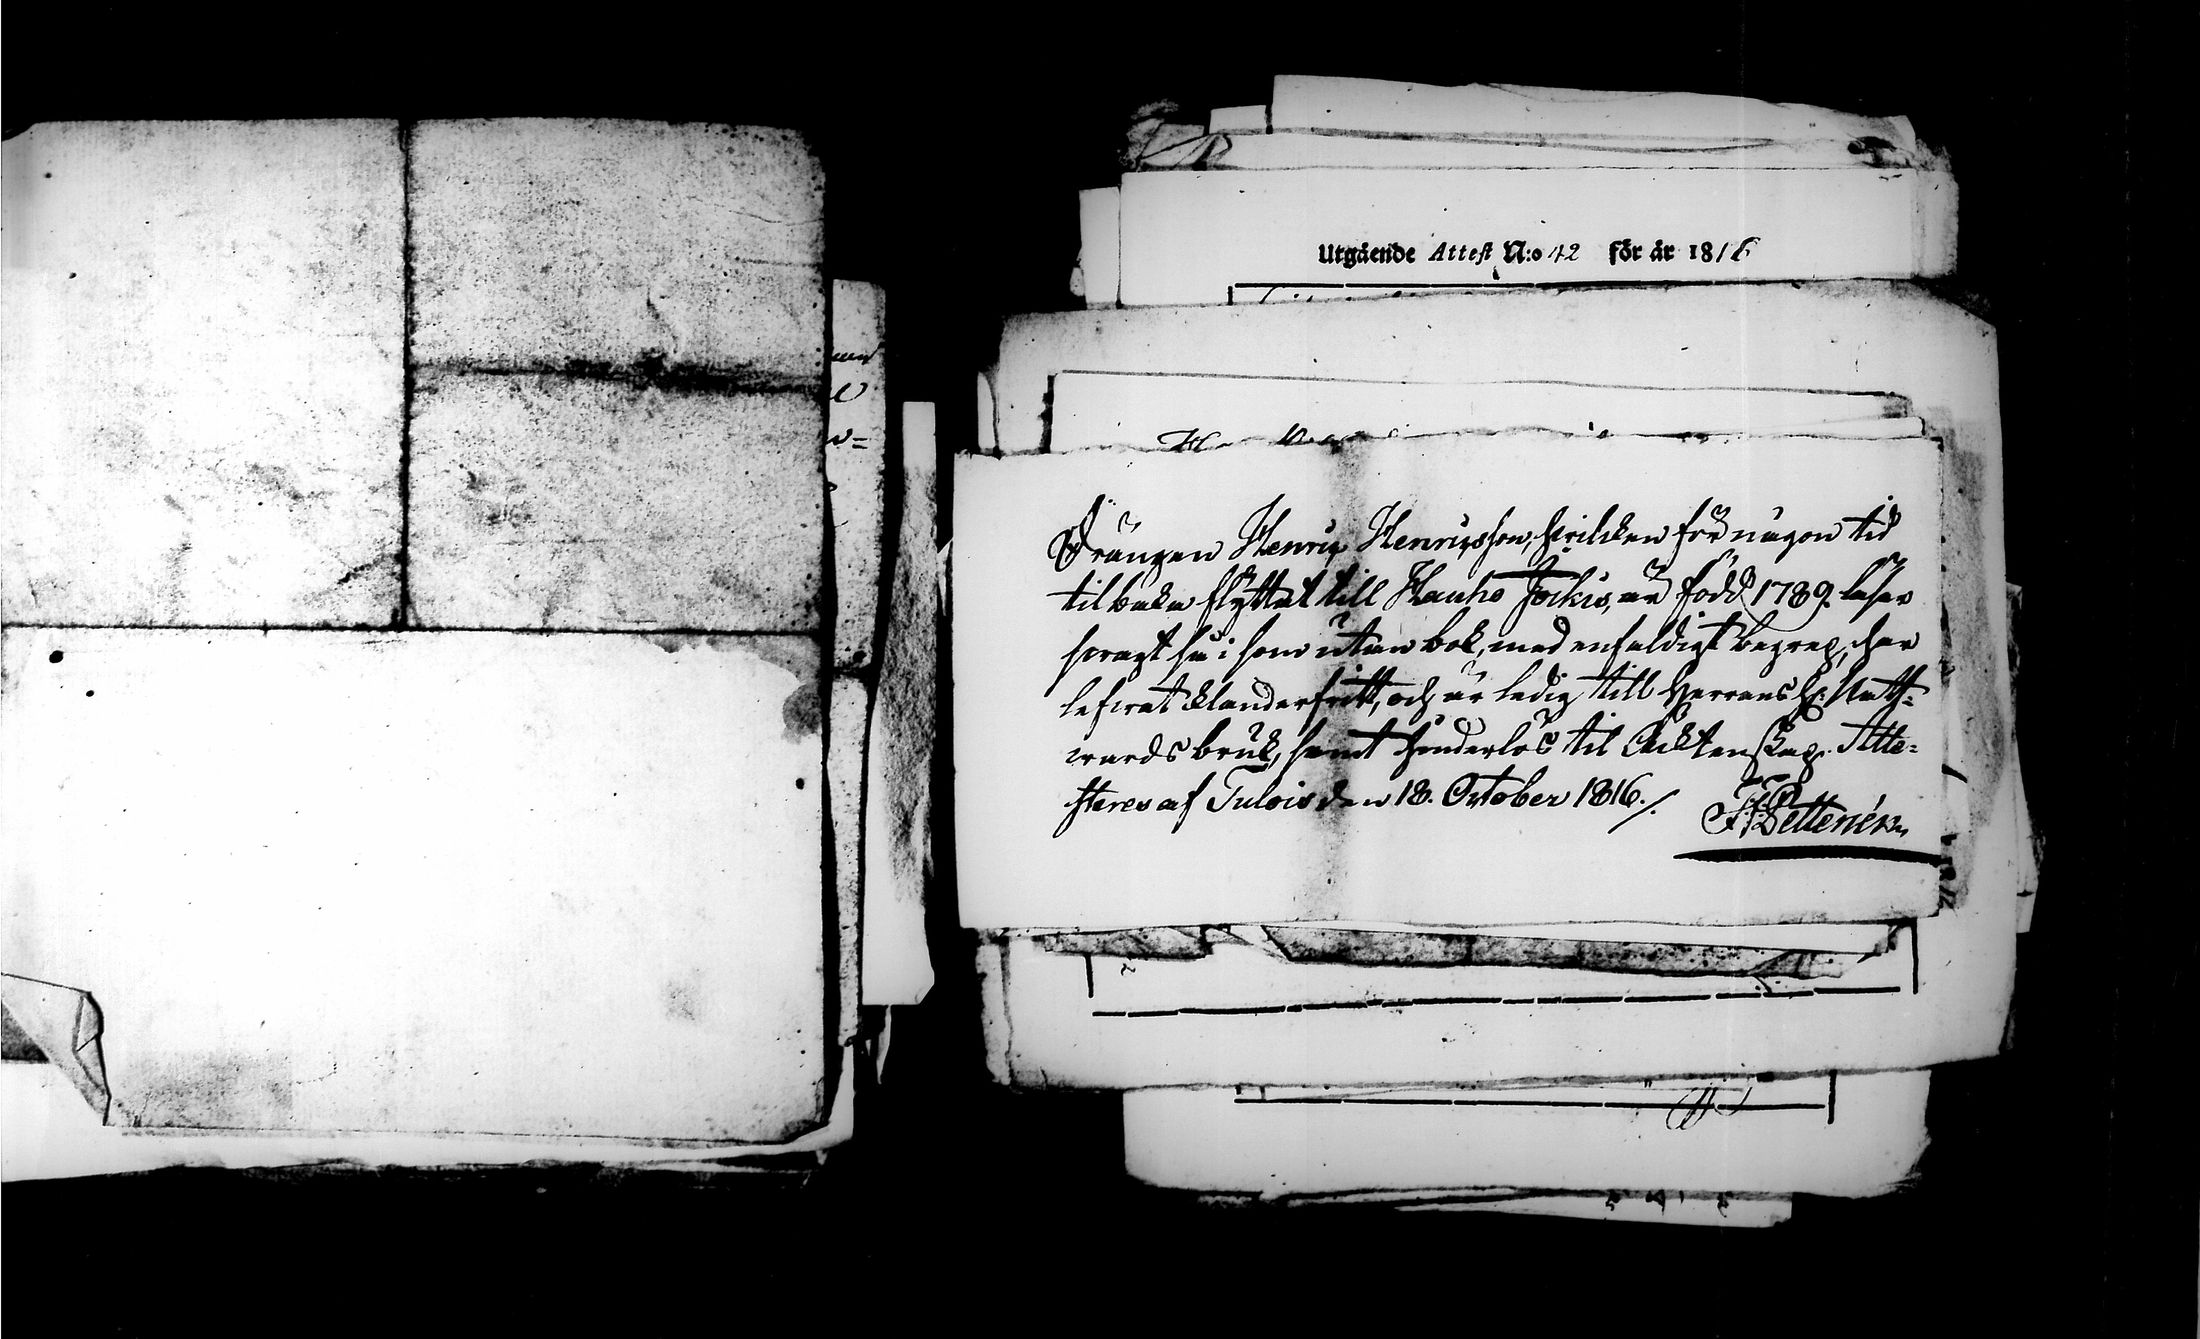 Utgående Attest N:o 42 för år 1816
Drängen Henric Henricsson, hvilcken för någon tid
tilbaka flyttat till Hauho Jockis, är född 1789. läser
svagt så i som utan bok, med enfaldigt begrep, har
lefvat klanderfritt, och är ledig till Herrans H: Natt-
vards bruk, samt hinderlös til Ächtenskap. Atte-
steres af Tulois den 18. October 1816./.